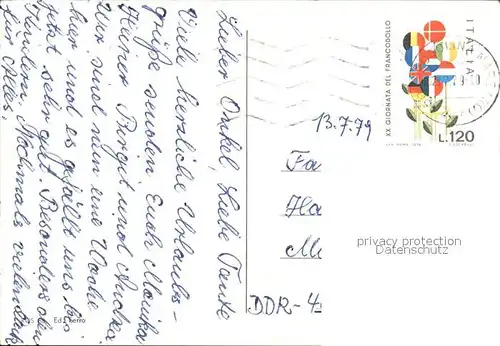 Lieber Onkel, liebe Tante
Viele herzliche Urlaubs-
grüße senden Euch Monika
Heiner Birgit und Andrea
Wir sind nun eine Woche
hier und es gefällt uns bis
jetzt sehr gut. Besonders den
Kindern. Nochmals vielen Dank
für alles.
Ed.
ITALIA
XX GIORNATA DEL FRANCOBOLLO
L.120
13.7.79
Fa
Ha
DDR-4
privacy protection
Datenschutz